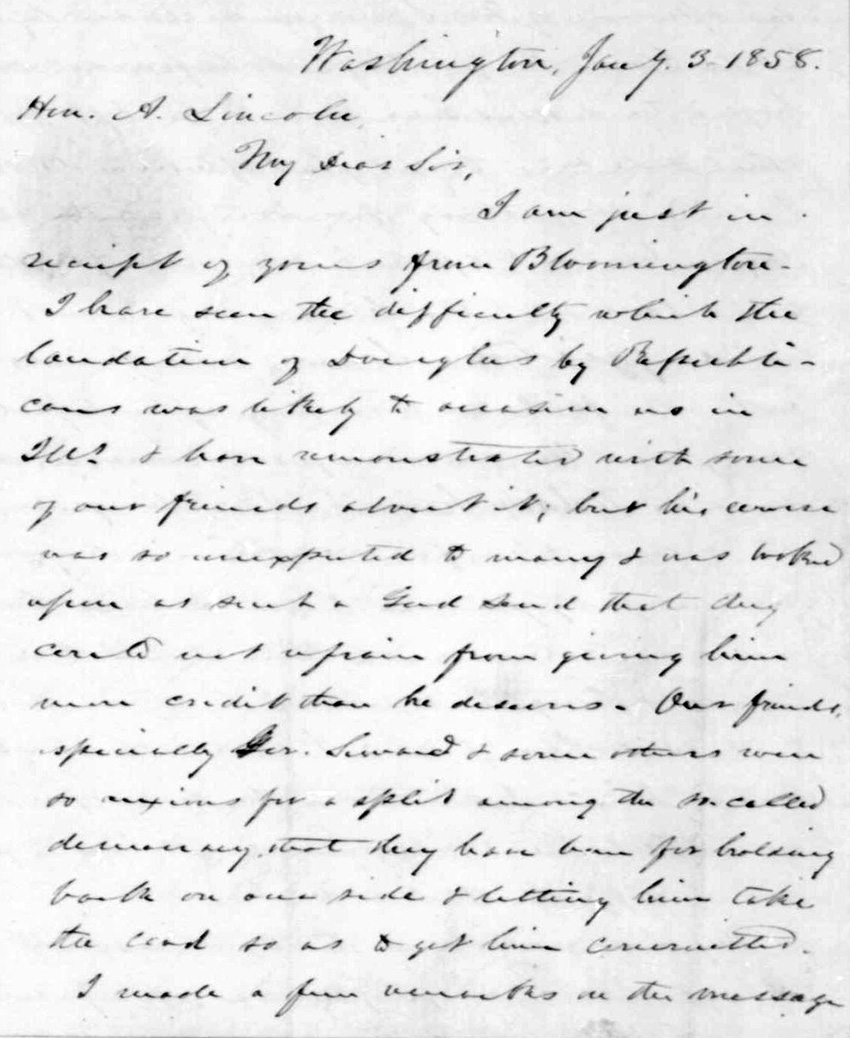 Washington, Jany. 3. 1858.
Hon. A. Lincoln,
My Dear Sir,
I am just in
receipt of yours from Bloomington.
I have seen the difficulty which the
laudation of Douglas by Republi-
cans was likely to occasion us in
Ills. & have remonstrated with some
of our friends about it, but his course
was so unexpected to many & was looked
upon as such a God send that they
could not refrain from giving him
more credit than he deserves. Our friends,
especially Gov. Seward & some others were
so anxious for a split among the so called
democracy that they have been for holding
back on our side & letting him take
the lead so as to get him committed.
I made a few remarks on the message